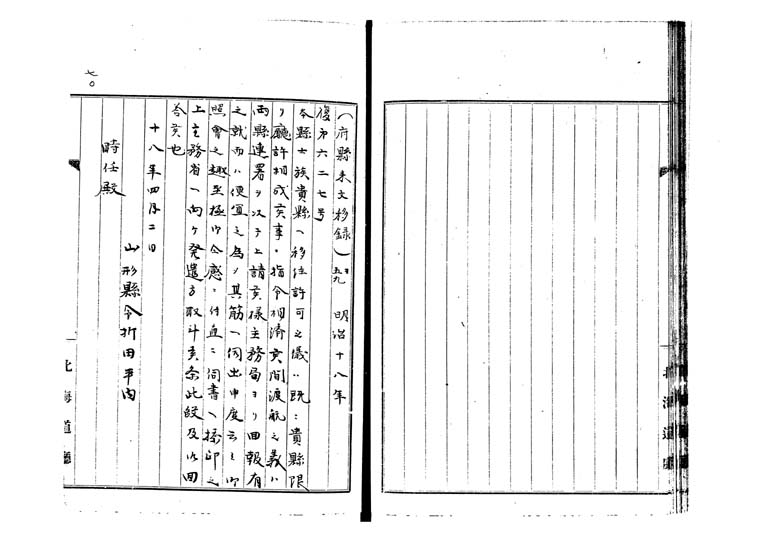 (府縣来文移録) 五九 明治十八年
復第六二七号
本縣士族貴縣ヘ移住許可之儀ハ既ニ貴縣限
リ廳許相成候事ニ指令相済候間渡航之義ハ
両縣連署ヲ以テ上請候様主務局ヨリ回報有
之就而ハ便宜之為メ其筋ヘ伺出申度云々御
照會之趣至極御同感ニ付直ニ伺書ヘ捺印之
上主務省ヘ向ケ発遣方取斗候条此段及御回
答候也
十八年四月二日
山形縣令折田平内
時任殿
七〇
北海道廳
北海道廳